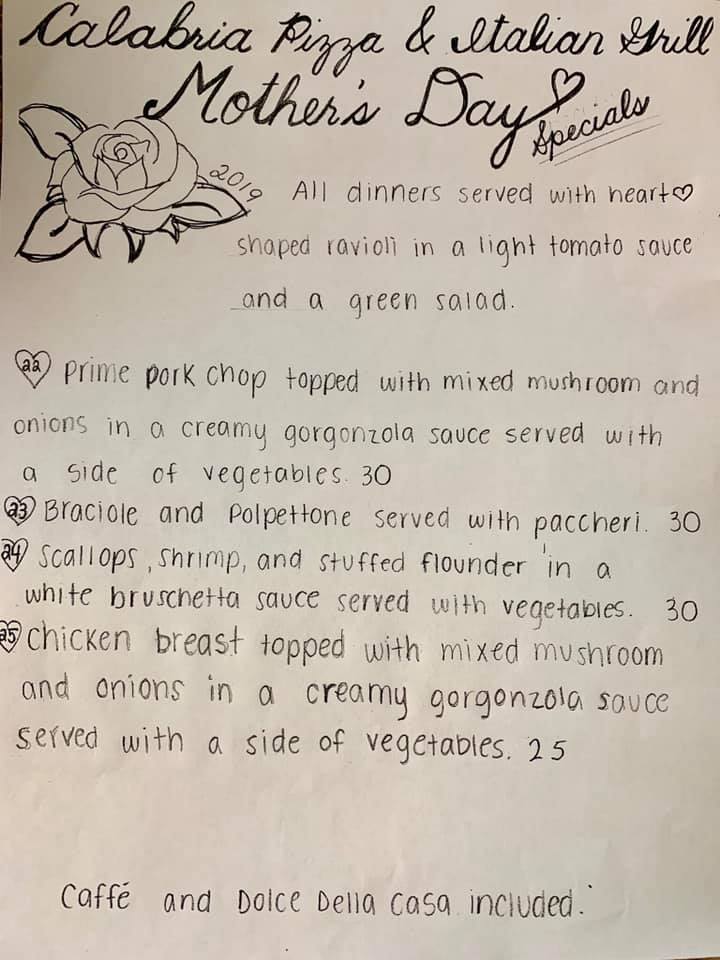 Calabria Pizza & Italian Grill
Mother's Day
Specials
2019
All dinners served with heart♡
shaped ravioli in a light tomato sauce
and a green salad.
22 Prime pork chop topped with mixed mushroom and
onions in a creamy gorgonzola sauce served with
a side of vegetables. 30
23 Braciole and Polpettone served with paccheri. 30
24 Scallops, shrimp, and stuffed flounder in a
white bruschetta sauce served with vegetables. 30
25 Chicken breast topped with mixed mushroom
and onions in a creamy gorgonzola sauce
served with a side of vegetables. 25
Caffé and Dolce Della Casa included.